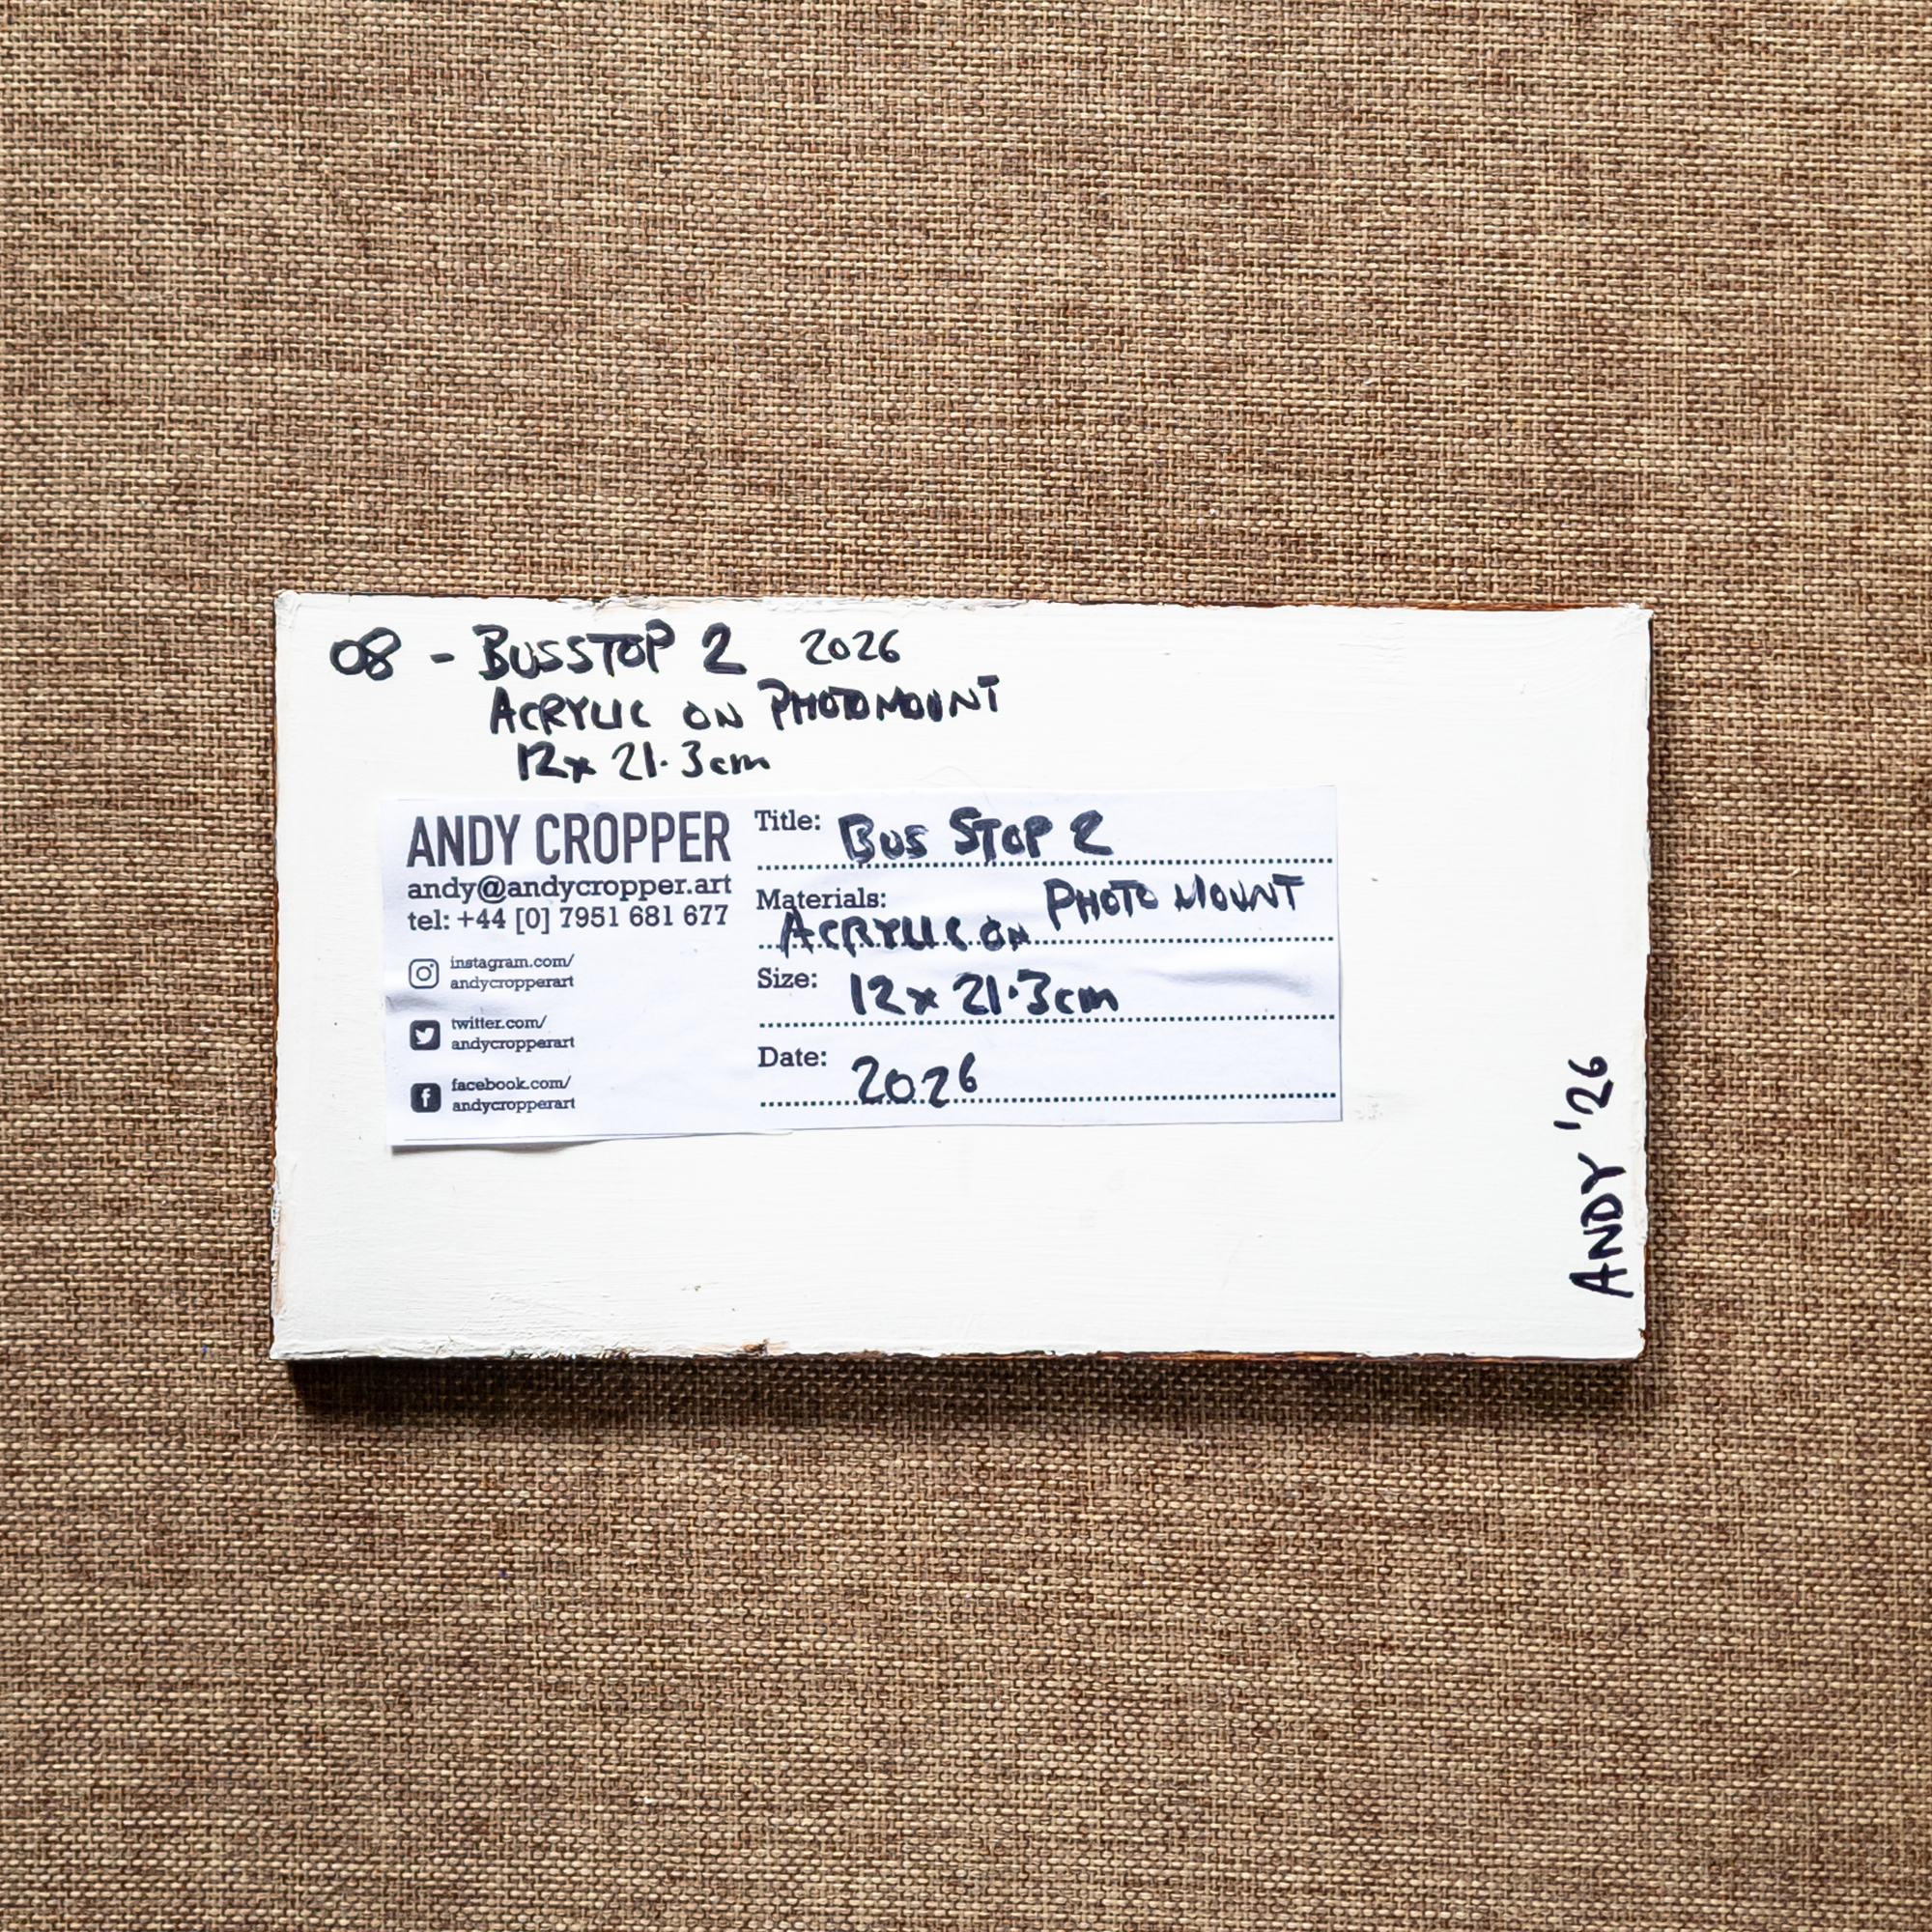 08 - BUSSTOP 2 2026
ACRYLIC ON PHOTOMOUNT
12x 21.3cm
ANDY CROPPER
andy@andycropper.art
tel: +44 [0] 7951 681 677
instagram.com/
andycropperart
twitter.com/
andycropperart
facebook.com/
andycropperart
Title: BUS STOP 2
Materials: ACRYLIC ON PHOTO MOUNT
Size: 12x 21.3cm
Date: 2026
ANDY '26